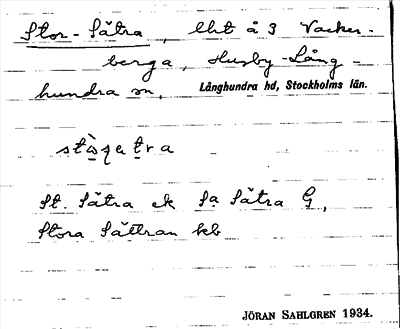 Stor-Sätra, lht å 3 Vacker-
berga, Husby-Lång-
hundra sn, Långhundra hd, Stockholms län.
St. Sätra ek Sa Sätra G,
Stora Sättran kb
JÖRAN SAHLGREN 1934.